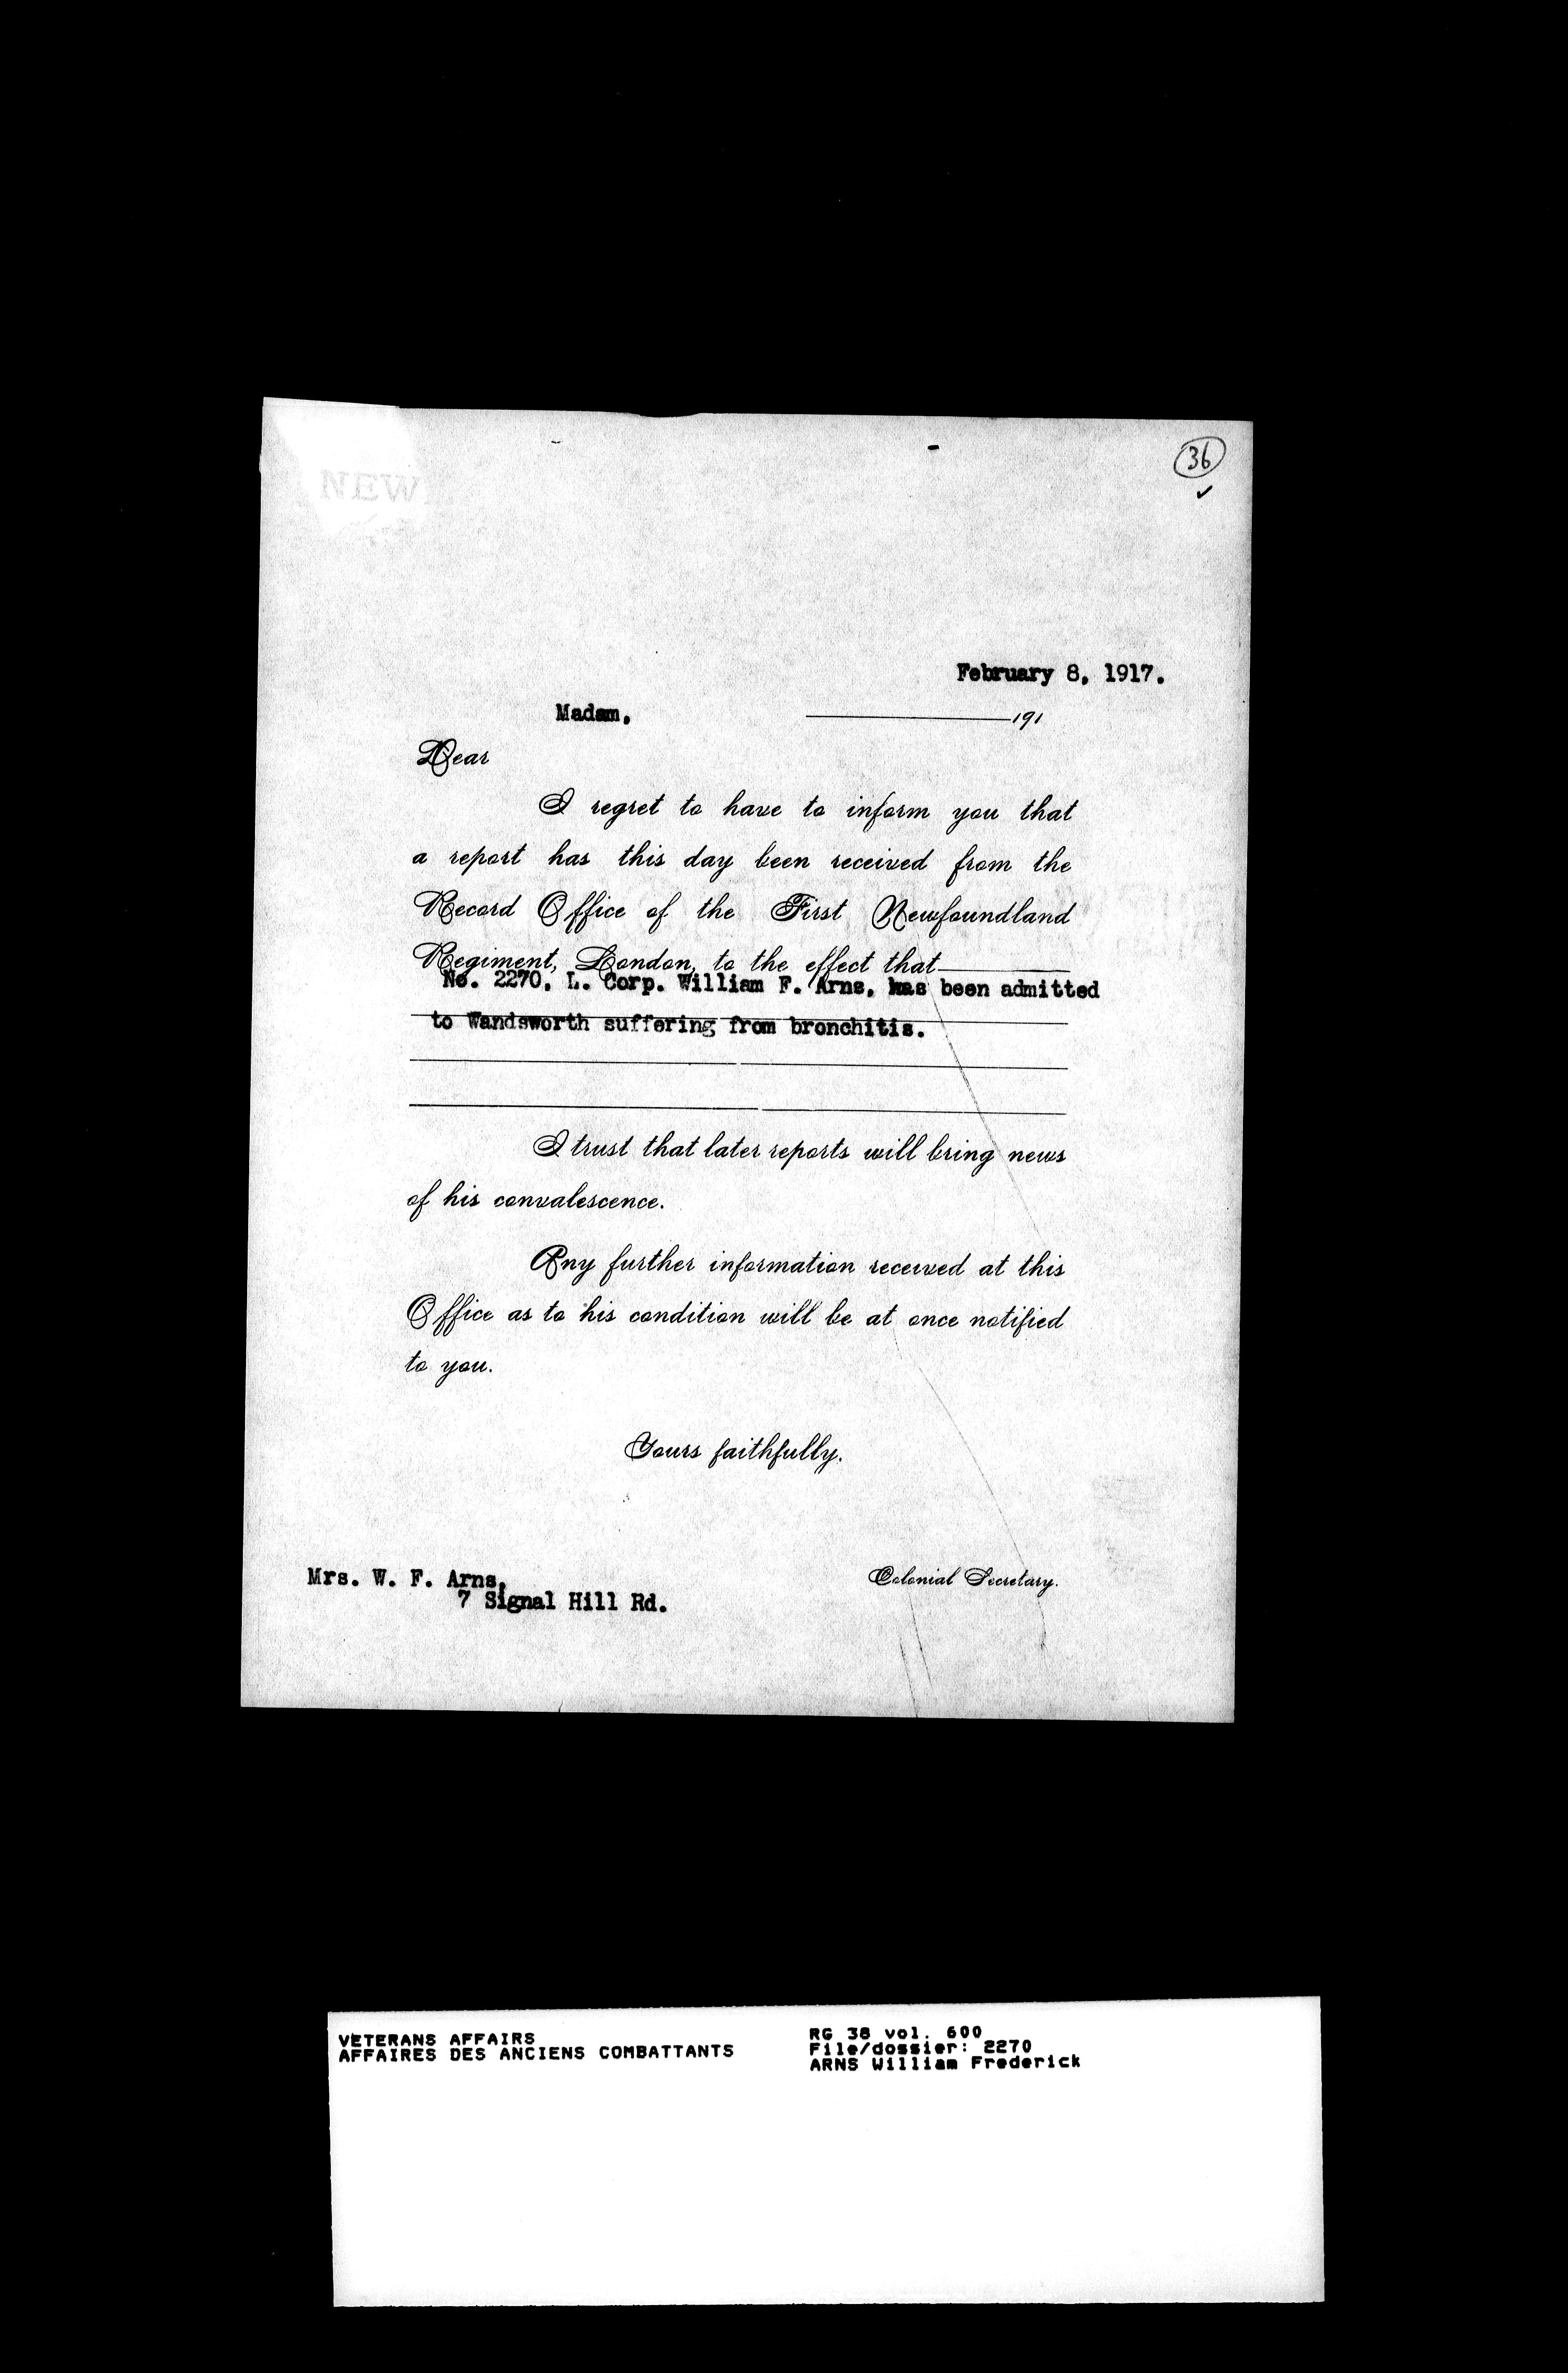 NEW
36
February 8, 1917.
Madam,
191
Dear
I regret to have to inform you that
a report has this day been received from the
Record Office of the First Newfoundland
Regiment, London, to the effect that
No. 2270, L. Corp. William F. Arns, has been admitted
to Wandsworth suffering from bronchitis.
I trust that later reports will bring news
of his convalescence.
Any further information received at this
Office as to his condition will be at once notified
to you.
Yours faithfully.
Colonial Secretary.
Mrs. W. F. Arns,
7 Signal Hill Rd.
VETERANS AFFAIRS
AFFAIRES DES ANCIENS COMBATTANTS
RG 38 vol. 600
File/dossier: 2270
ARNS William Frederick